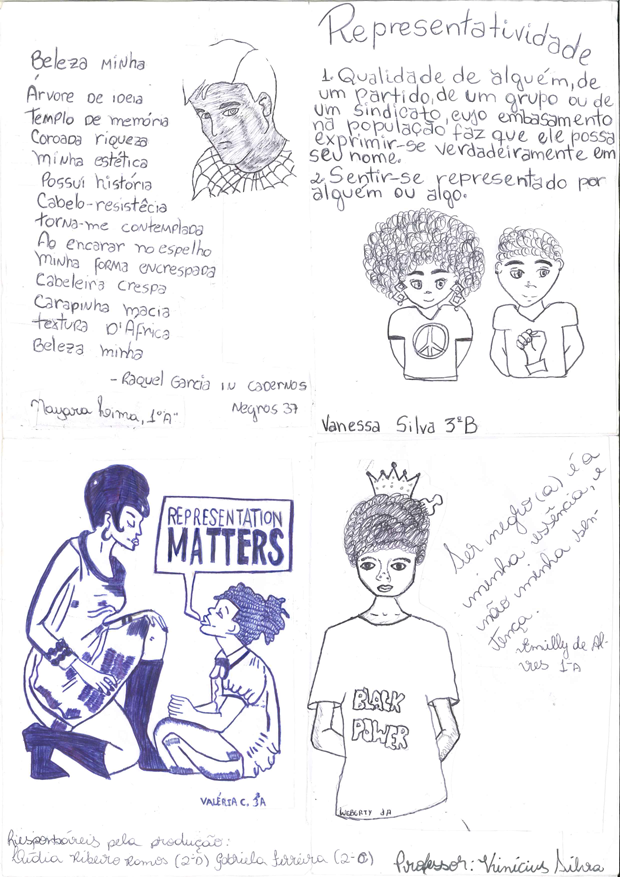 Beleza minha
Árvore de ideia
Templo de memória
Coroada riqueza
minha estética
Possui história
Cabelo-resistêcia
torna-me contemplada
Ao encarar no espelho
minha forma encrespada
Cabeleira crespa
Carapinha macia
textura D'África
Beleza minha
-Raquel Garcia in Cadernos
Negros 37
Mayara Lima, 1º"A"
Representatividade
1. Qualidade de alguém, de
um partido, de um grupo ou de
um sindicato, cujo embasamento
na população faz que ele possa
exprimir-se verdadeiramente em
seu nome.
2. Sentir-se representado por
alguém ou algo.
Vanessa Silva 3ºB
REPRESENTATION
MATTERS
VALÉRIA C. 3ºA
Ser negro(a) é a
minha essência, e
não minha sen-
tença.
Emilly de Al-
ves 1-A
BLACK
POWER
WEBERTY 3A
Responsáveis pela produção:
Lídia Ribeiro Ramos (2-D) Gabriela Ferreira (2-C)
Professor: Vinícius Silva